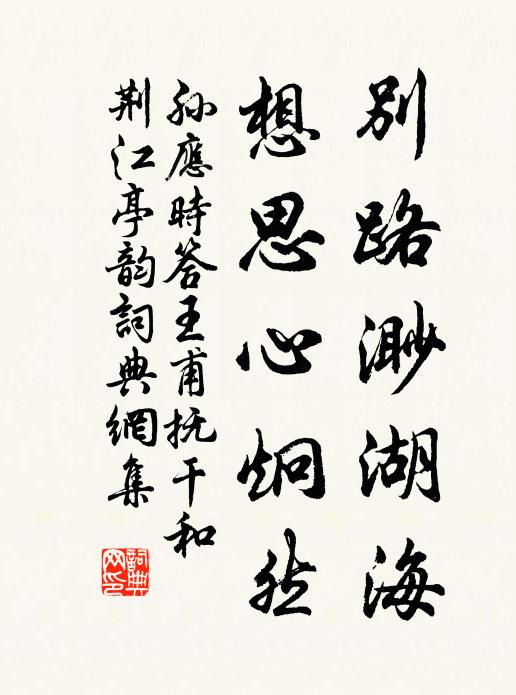 別路渺湖海
想思心炯然
孫應時答王甫抚干和
荆江亭韵詞典網集
詞典網印